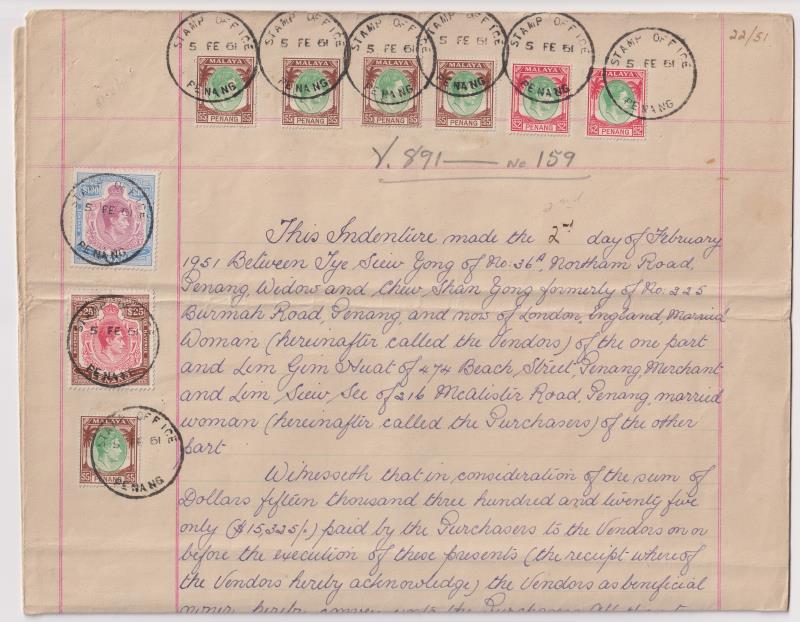 STAMP OFFICE 5 FE 51 PENANG
STAMP OFFICE 5 FE 51 PENANG
STAMP OFFICE 5 FE 51 PENANG
STAMP OFFICE 5 FE 51 PENANG
STAMP OFFICE 5 FE 51 PENANG
STAMP OFFICE 5 FE 51 PENANG
22/51
MALAYA $5 PENANG $5
MALAYA $5 PENANG $5
MALAYA $5 PENANG $5
MALAYA $5 PENANG $5
MALAYA $2 PENANG $2
MALAYA $2 PENANG $2
Y. 891 — No 159
2nd
STAMP OFFICE 5 FE 51 PENANG
This Indenture made the 2nd day of February
1951 Between Tye Siew Yong of No: 36A, Northam Road,
Penang, Widow and Chew Shan Yong formerly of No: 225
$25 $25
STAMP OFFICE 5 FE 51 PENANG
Burmah Road, Penang, and now of London, England, Married
Woman (hereinafter called the Vendors) of the one part
and Lim Gim Huat of 474 Beach, Street, Penang, Merchant
and Lim Siew See of 216 McAlistir Road, Penang, married
woman (hereinafter called the Purchasers) of the other
part
MALAYA $5 PENANG $5
STAMP OFFICE 5 FE 51 PENANG
Witnesseth that in consideration of the sum of
Dollars fifteen thousand three hundred and twenty five
only ($15,325/-) paid by the Purchasers to the Vendors on or
before the execution of these presents (the receipt where of
the Vendors hereby acknowledge) the Vendors as beneficial
owner hereby convey unto the Purchasers All that